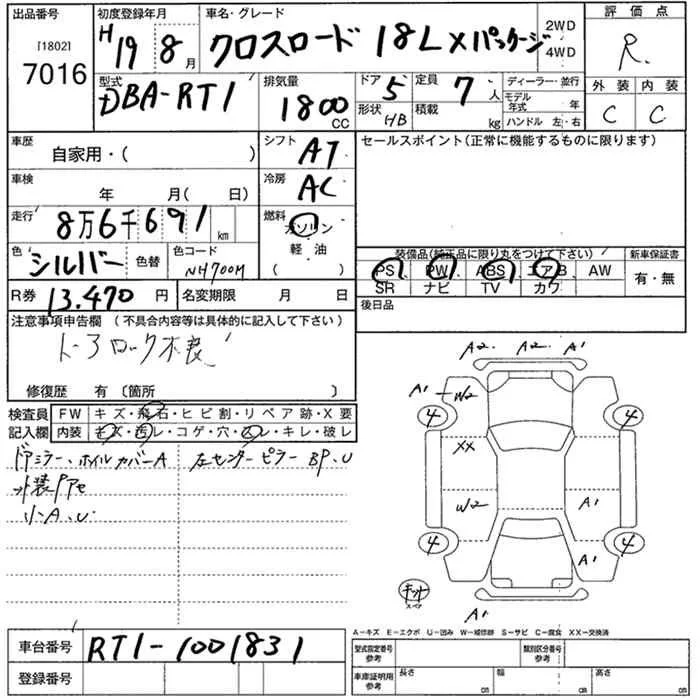 出品番号
[1802]
7016
初度登録年月
H19 8月
車名・グレード
クロスロード 18L Xパッケージ
2WD
4WD
評価点
R
外装 内装
C C
型式
DBA-RT1
排気量
1800 CC
ドア 5
形状 HB
定員 7人
積載 kg
ディーラー・並行
モデル年式 年
ハンドル 左・右
車歴
自家用・( )
シフト AT
車検
年 月( 日)
冷房 AC
走行
8万6千691 km
燃料
ガソリン
軽・油
( )
色 シルバー 色替
色コード NH700M
R券 13.470円
名変期限 月 日
セールスポイント(正常に機能するものに限ります)
装備品(純正品に限り丸をつけて下さい)
PS PW ABS エアB AW
SR ナビ TV カワ
新車保証書
有・無
後日品
注意事項申告欄 (不具合内容等は具体的に記入して下さい)
ドアロック不良
修復歴 有 〔箇所 〕
検査員
記入欄
FW キズ・飛石・ヒビ割・リペア跡・X要
内装 キズ・汚レ・コゲ・穴・スレ・キレ・破レ
ドアミラー、ホイルカバーA
左センターピラー BP、U
小A、U
A2 A2 A1
A1 W2
4 4
XX
W2 A1
4 4
A1
キット
スペア
A1
A-キズ E-エクボ U-凹み W-補修跡 S-サビ C-腐食 XX-交換済
車台番号 RT1-1001831
登録番号
型式指定番号
参考
類別区分番号
参考
車庫証明用
参考
長さ cm
幅 cm
高さ cm